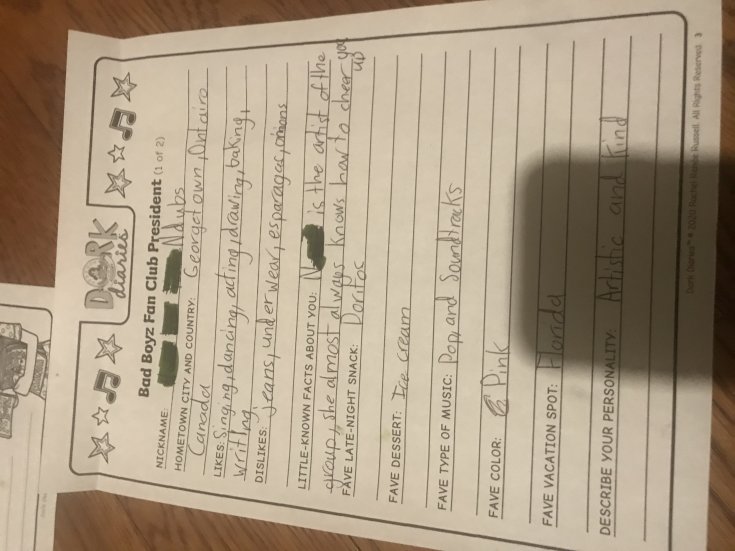 DORK
diaries
Bad Boyz Fan Club President (1 of 2)
NICKNAME: Nubs
HOMETOWN CITY AND COUNTRY: Georgetown, Ontairo
Canada
LIKES: Singing, dancing, acting, drawing, baking,
writing
DISLIKES: jeans, underwear, esparagac, onions
LITTLE-KNOWN FACTS ABOUT YOU: N is the artist of the
group, she almost always knows how to cheer you
up
FAVE LATE-NIGHT SNACK: Doritos
FAVE DESSERT: Ice cream
FAVE TYPE OF MUSIC: Pop, and Soundtracks
FAVE COLOR: Pink
FAVE VACATION SPOT: Florida
DESCRIBE YOUR PERSONALITY: Artistic and Kind
Dork Diaries™ © 2020 Rachel Renée Russell. All Rights Reserved. 3